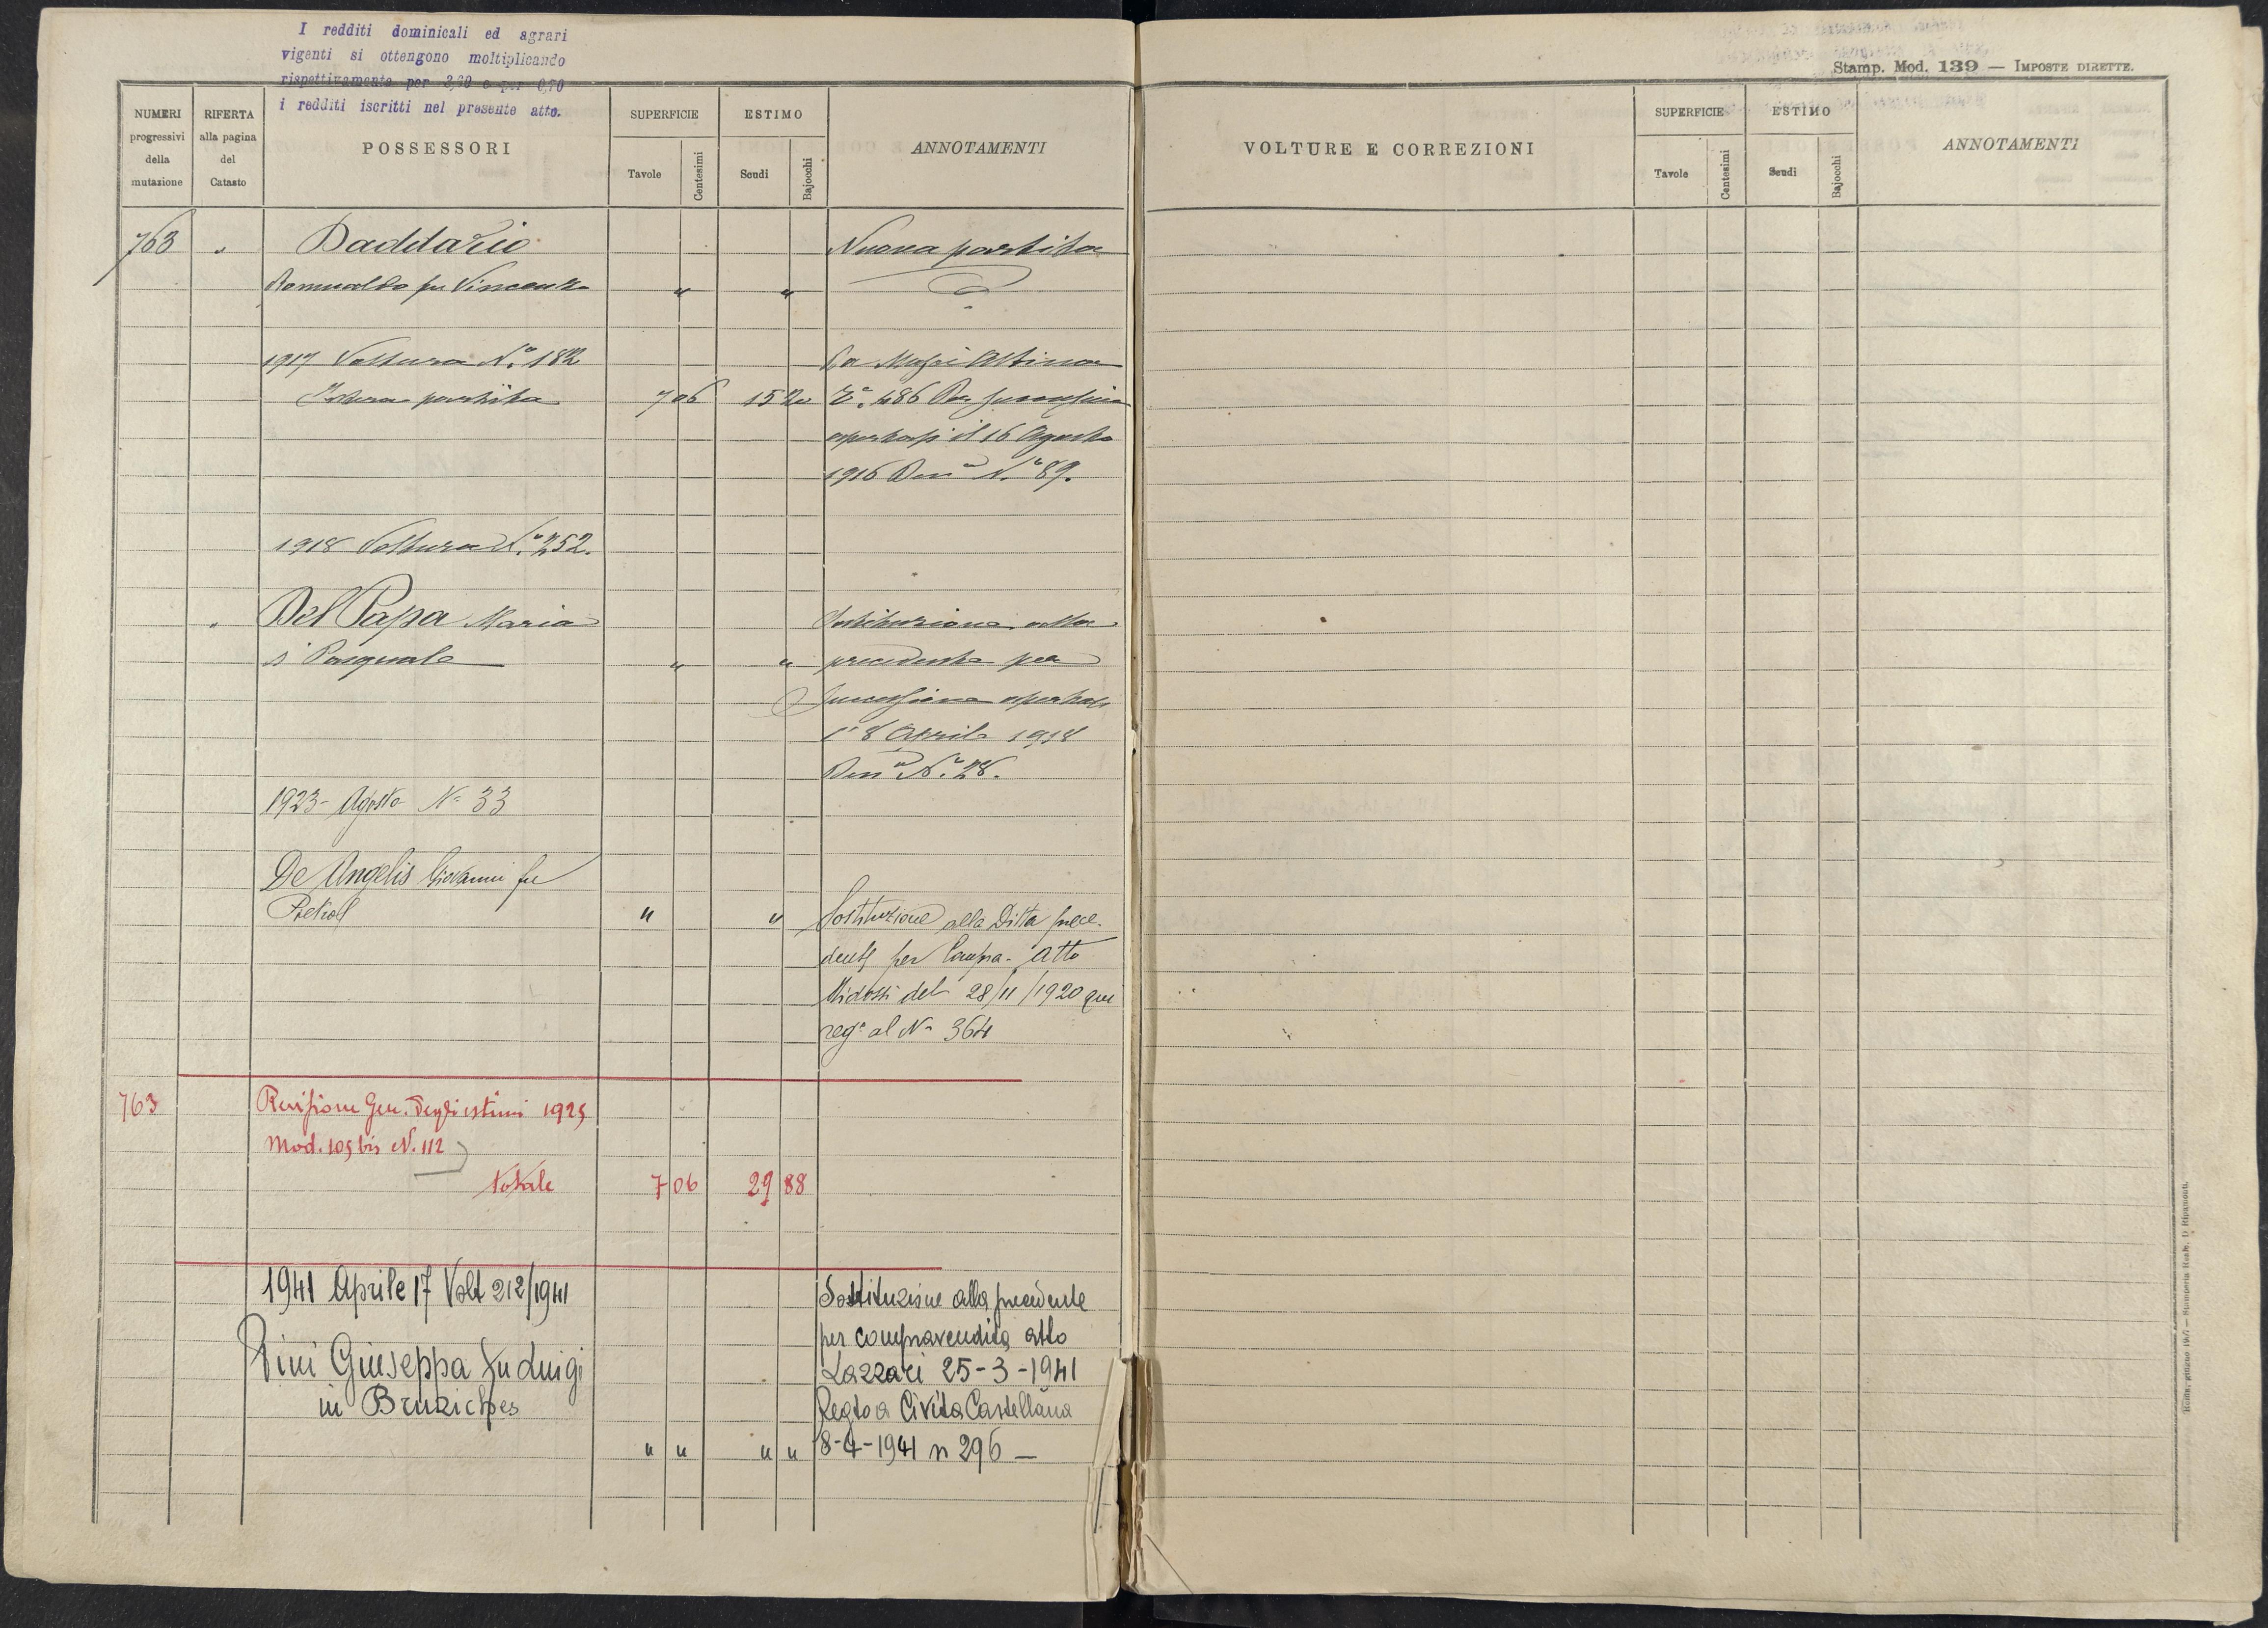 I redditi dominicali ed agrari
vigenti si ottengono moltiplicando
rispettivamente per 3,60 e per 0,70
i redditi iscritti nel presente atto.
NUMERI progressivi della mutazione
RIFERTA alla pagina del Catasto
POSSESSORI
SUPERFICIE
Tavole
Centesimi
ESTIMO
Scudi
Bajocchi
ANNOTAMENTI
763 Daddario Nuova partita
Romualdo fu Vincenzo " "
1917 Voltura N.º 182 Da
Intera partita 7 06 15 20 486 Per successione
apertasi il 16 Agosto
1916 Den.ª N.º 89.
1918 Voltura N.º 252.
Del Papa Maria Sostituzione alla
di Pasquale " " precedente per
successione apertasi
l'8 Aprile 1918
Den.ª N.º 28.
1923 - Agosto Nº 33
De Angelis Giovanni fu
" " Sostituzione alla Ditta prece-
dente per Compra - Atto
Midossi del 28/11/1920 qui
reg.º al Nº 364
763 Revisione Gen. degli estimi 1925
Mod. 105 bis N. 112
Totale 7 06 29 88
1941 Aprile 17 Volt 212/1941 Sostituzione alla precedente
per compravendita atto
Pini Giuseppa fu Luigi Lazzari 25-3-1941
in Bruziches Regto a Civita Castellana
" " " " 8-4-1941 n 296 —
Stamp. Mod. 139 — IMPOSTE DIRETTE.
VOLTURE E CORREZIONI
SUPERFICIE
Tavole
Centesimi
ESTIMO
Scudi
Bajocchi
ANNOTAMENTI